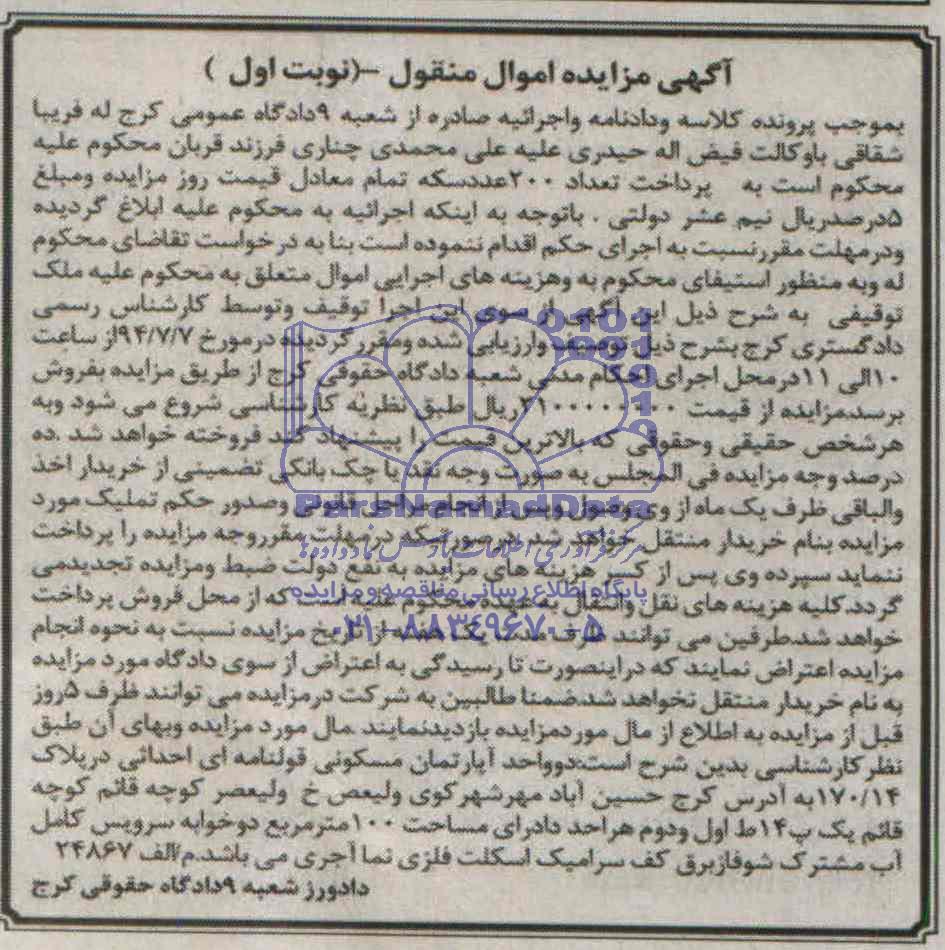 آگهی مزایده اموال منقول -(نوبت اول )
بموجب پرونده کلاسه ودادنامه واجرائیه صادره از شعبه ۹دادگاه عمومی کرج له فریبا
شقاقی باوکالت فیض اله حیدری علیه علی محمدی چناری فرزند قربان محکوم علیه
محکوم است به پرداخت تعداد ۲۰۰عددسکه تمام معادل قیمت روز مزایده ومبلغ
۵درصدریال نیم عشر دولتی . باتوجه به اینکه اجرائیه به محکوم علیه ابلاغ گردیده
ودرمهلت مقررنسبت به اجرای حکم اقدام ننموده است بنا به درخواست تقاضای محکوم
له وبه منظور استیفای محکوم به وهزینه های اجرایی اموال متعلق به محکوم علیه ملک
توقیفی به شرح ذیل این آگهی از سوی این اجرا توقیف وتوسط کارشناس رسمی
دادگستری کرج بشرح ذیل توصیف وارزیابی شده ومقرر گردیده درمورخ ۹۴/۷/۷از ساعت
۱۰الی ۱۱درمحل اجرای احکام مدنی شعبه دادگاه حقوقی کرج از طریق مزایده بفروش
برسد.مزایده از قیمت ریال طبق نظریه کارشناسی شروع می شود وبه
هرشخص حقیقی وحقوقی که بالاترین قیمت را پیشنهاد کند فروخته خواهد شد .ده
درصد وجه مزایده فی المجلس به صورت وجه نقد یا چک بانکی تضمینی از خریدار اخذ
والباقی ظرف یک ماه از وی وصول وپس از انجام مراحل قانونی وصدور حکم تملیک مورد
مزایده بنام خریدار منتقل خواهد شد .درصورتیکه درمهلت مقرروجه مزایده را پرداخت
ننماید سپرده وی پس از کسر هزینه های مزایده به نفع دولت ضبط ومزایده تجدیدمی
گردد.کلیه هزینه های نقل وانتقال به عهده محکوم علیه است که از محل فروش پرداخت
خواهد شد.طرفین می توانند ظرف مدت یک هفته از تاریخ مزایده نسبت به نحوه انجام
مزایده اعتراض نمایند که دراینصورت تا رسیدگی به اعتراض از سوی دادگاه مورد مزایده
به نام خریدار منتقل نخواهد شد.ضمنا طالبین به شرکت درمزایده می توانند ظرف ۵روز
قبل از مزایده به اطلاع از مال موردمزایده بازدیدنمایند .مال مورد مزایده وبهای آن طبق
نظر کارشناسی بدین شرح است:دوواحد آپارتمان مسکونی قولنامه ای احداثی درپلاک
۱۷۰/۱۴به آدرس کرج حسین آباد مهرشهرکوی ولیعص خ ولیعصر کوچه قائم کوچه
قائم یک پ۱۴ط اول ودوم هراحد دادرای مساحت ۱۰۰مترمربع دوخوابه سرویس کامل
آب مشترک شوفاژبرق کف سرامیک اسکلت فلزی نما آجری می باشد.م/الف ۲۴۸۶۷
دادورز شعبه ۹دادگاه حقوقی کرج
ParsNamadData
پایگاه اطلاع رسانی مناقصه و مزایده
۰۲۱-۸۸۳۴۹۶۷۰-۵